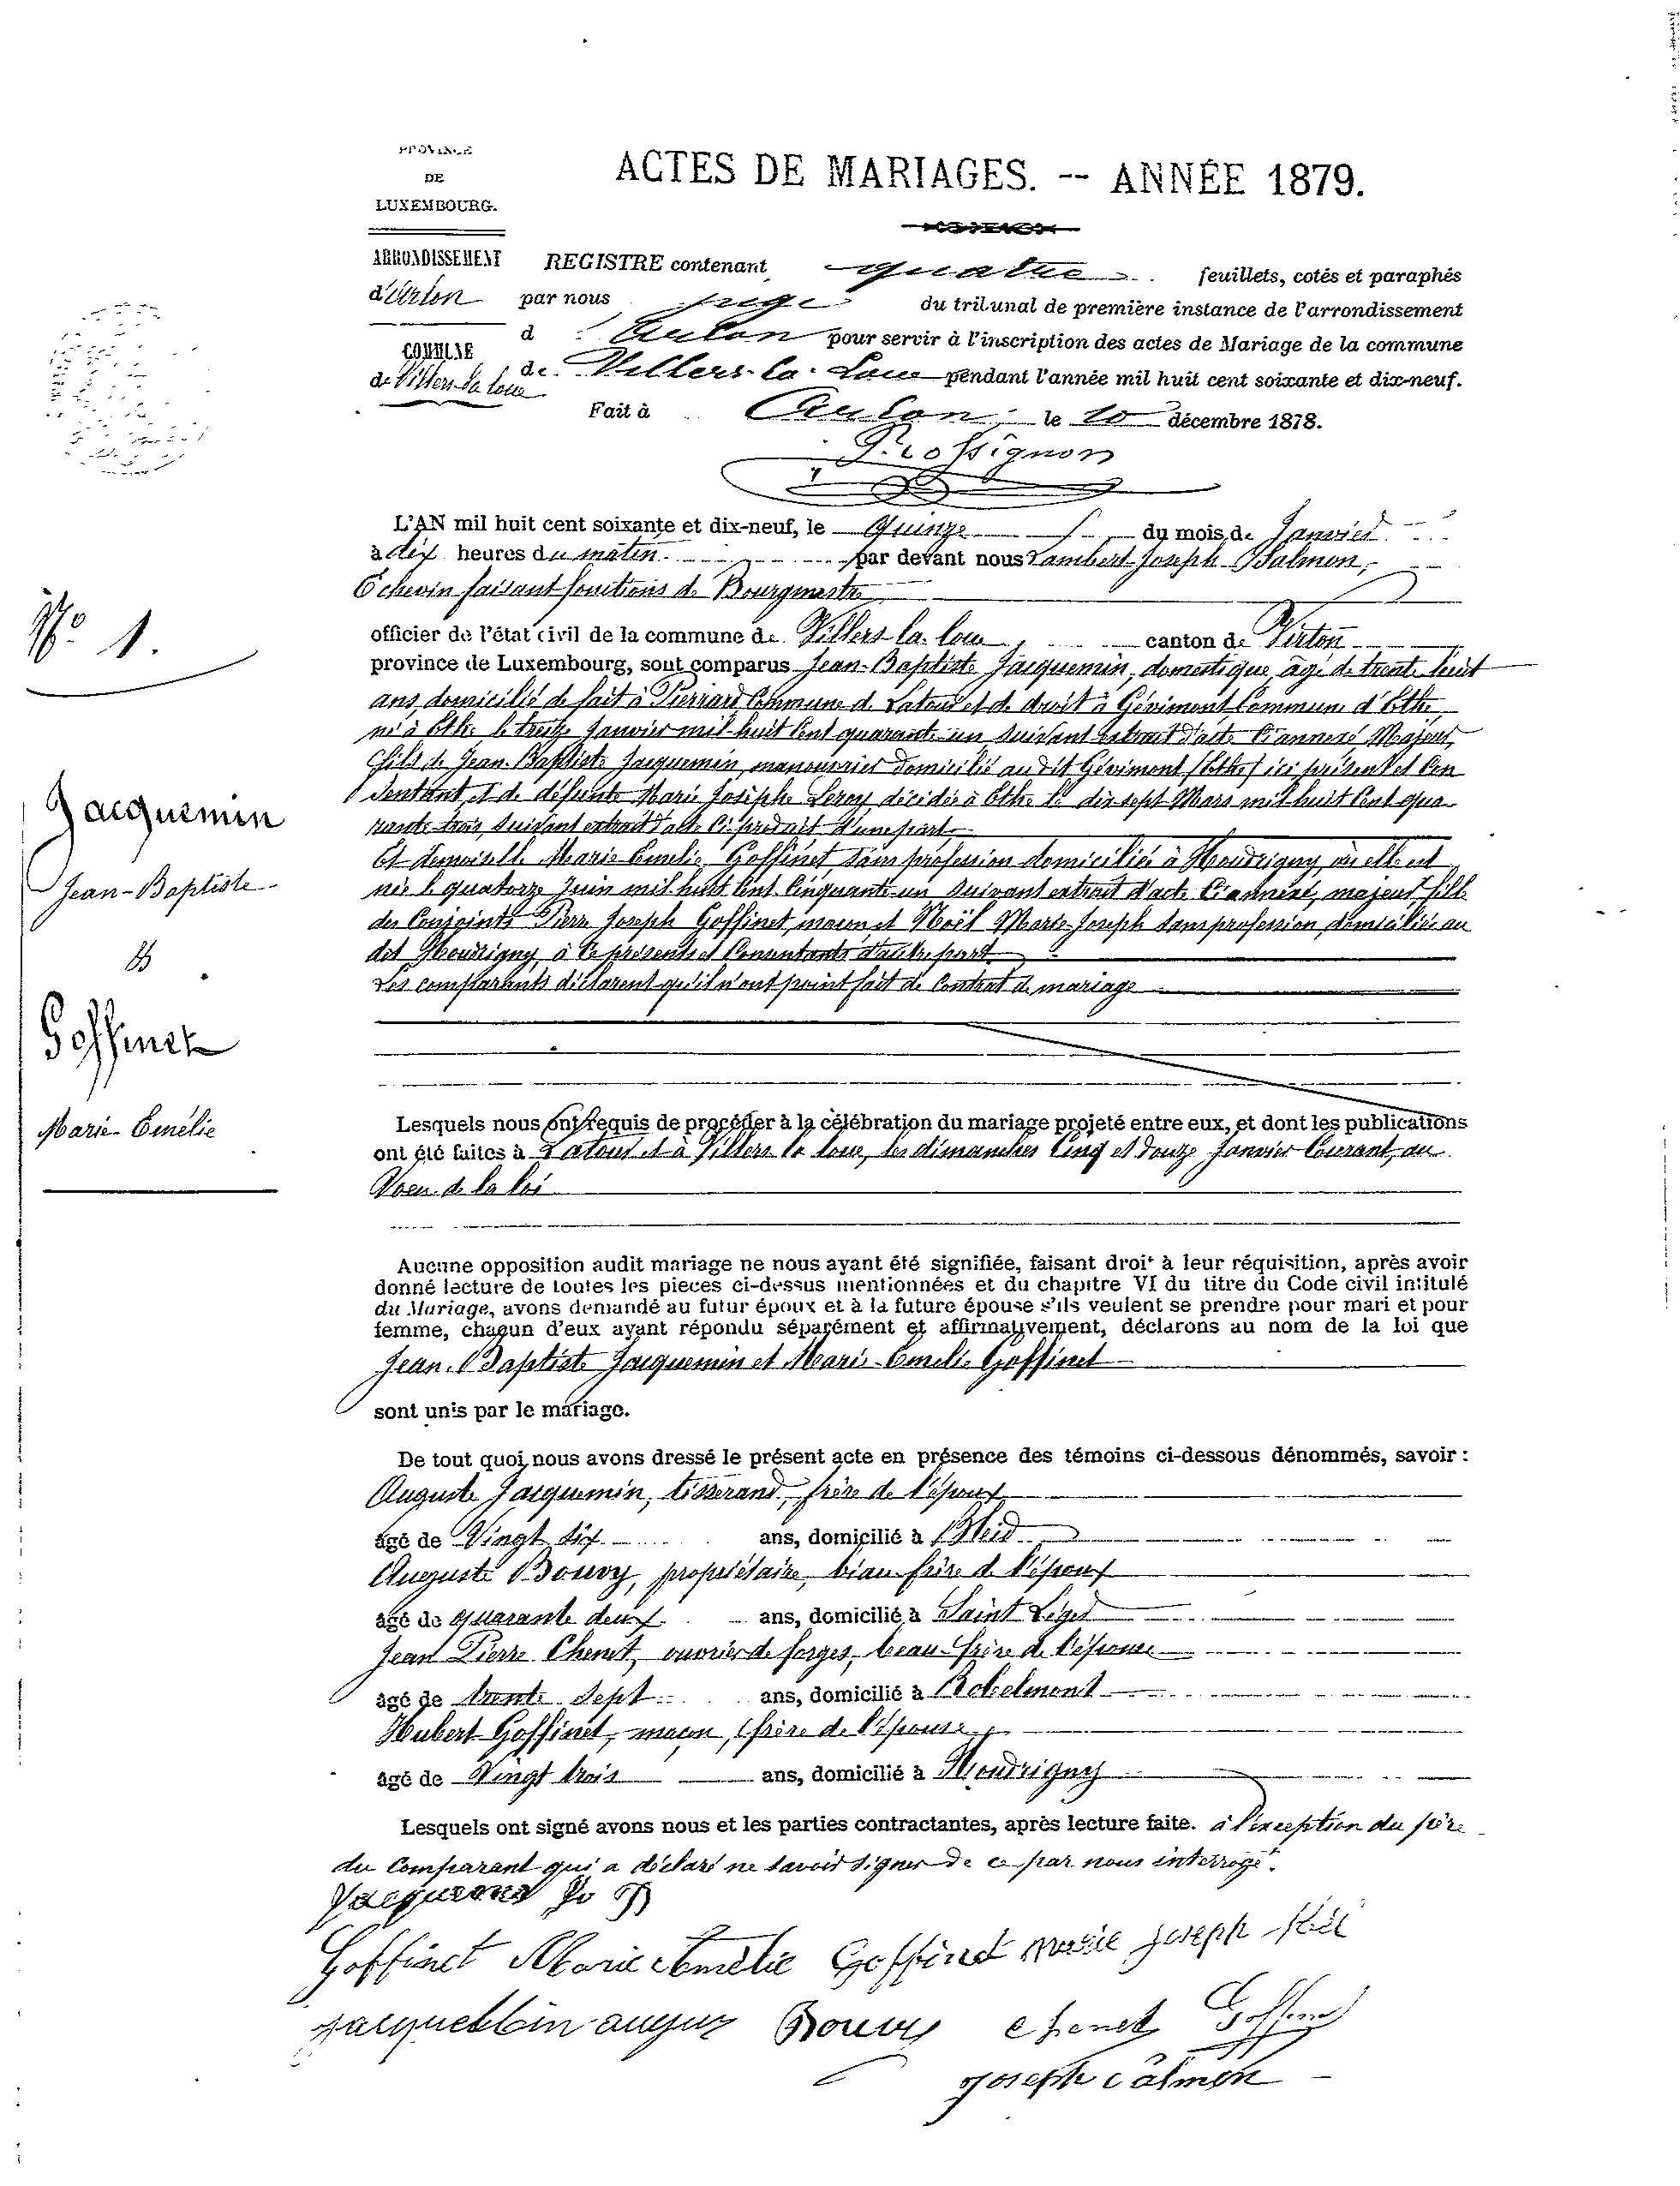 PROVINCE
DE
LUXEMBOURG.
ACTES DE MARIAGES. -- ANNÉE 1879.
ARRONDISSEMENT
d'Arlon
COMMUNE
de Villers la loue
REGISTRE contenant quatre feuillets, cotés et paraphés
par nous juge du tribunal de première instance de l'arrondissement
d Arlon pour servir à l'inscription des actes de Mariage de la commune
de Villers-la-Loue pendant l'année mil huit cent soixante et dix-neuf.
Fait à Arlon, le 10 décembre 1878.
P. Rossignon
L'AN mil huit cent soixante et dix-neuf, le quinze du mois de Janvier
à dix heures du matin par devant nous Lambert Joseph Salmon,
Échevin faisant fonctions de Bourgmestre
officier de l'état civil de la commune de Villers-la-loue, canton de Virton
province de Luxembourg, sont comparus Jean-Baptiste Jacquemin, domestique, âgé de trente huit
ans, domicilié de fait à Pierrard Commune de Latour et de droit à Gévimont Commune d'Ethe,
né à Ethe le treize Janvier mil huit Cent quarante un suivant extrait d'acte Ci annexé Majeur,
fils de Jean-Baptiste Jacquemin, manouvrier domicilié au dit Gévimont (Ethe) ici présent et Con
sentant et de défunte Marie Josèphe Leroy décédée à Ethe le dix sept Mars mil huit Cent qua
rante trois suivant extrait d'acte Ci produit d'une part,
Et demoiselle Marie Emelie Goffinet, sans profession domiciliée à Houdrigny, où elle est
née le quatorze Juin mil huit Cent Cinquante un suivant extrait d'acte Ci annexé, majeure fille
des Conjoints Pierre Joseph Goffinet, maçon et Noël Marie-Joseph sans profession, domiciliés au
dit Houdrigny à Ce présents et Consentants d'autre part
Les comparants déclarent qu'il n'ont point fait de Contrat de mariage
Lesquels nous ont requis de procéder à la célébration du mariage projeté entre eux, et dont les publications
ont été faites à Latour et à Villers la loue, les dimanches Cinq et Douze Janvier Courant, au
Voeu de la loi
Aucune opposition audit mariage ne nous ayant été signifiée, faisant droit à leur réquisition, après avoir
donné lecture de toutes les pieces ci-dessus mentionnées et du chapitre VI du titre du Code civil intitulé
du Mariage, avons demandé au futur époux et à la future épouse s'ils veulent se prendre pour mari et pour
femme, chacun d'eux ayant répondu séparément et affirmativement, déclarons au nom de la loi que
Jean-Baptiste Jacquemin et Marie-Emelie Goffinet
sont unis par le mariage.
De tout quoi nous avons dressé le présent acte en présence des témoins ci-dessous dénommés, savoir :
Auguste Jacquemin, tisserand, frère de l'époux
agé de Vingt six ans, domicilié à Bleid
Auguste Bouvy, propriétaire, beau-frère de l'époux
agé de quarante deux ans, domicilié à Saint Léger
Jean Pierre Chenet, ouvrier de forges, beau-frère de l'épouse
agé de trente sept ans, domicilié à Robelmont
Hubert Goffinet, maçon, frère de l'épouse,
agé de Vingt trois ans, domicilié à Houdrigny
Lesquels ont signé avons nous et les parties contractantes, après lecture faite. à l'exception du père
du Comparant qui a déclaré ne savoir signer de ce par nous interrogé.
Jacquemin J B
Goffinet Marie Amélie Goffinet Marie Joseph Noël
Jacquemin august Bouvy Chenet Goffinet
Joseph Salmon
N° 1.
Jacquemin
Jean-Baptiste
&
Goffinet
Marie-Emélie